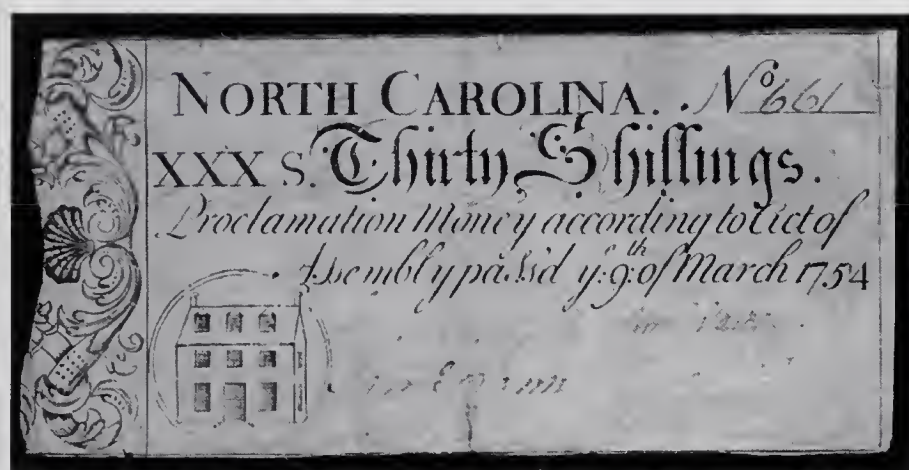 NORTH CAROLINA. . No. 661
XXX S. Thirty Shillings.
Proclamation Money according to Act of
Assembly pass'd ye. 9th. of March 1754